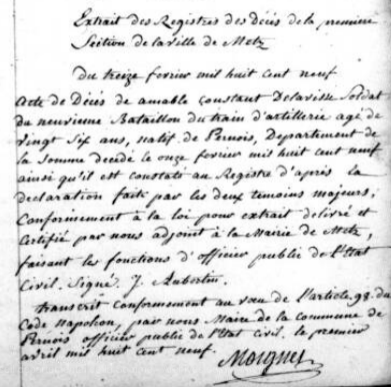 Extrait des Registres des décès de la première
Section de la ville de Metz
du treize fevrier mil huit cent neuf
acte de Décès de amable constant Delavisse Soldat
du neuvieme Bataillon du train d'artillerie agé de
vingt Six ans, natif de Pernois, Departement de
la Somme decedé le onze fevrier mil huit cent neuf
ainsi qu'il est constaté au Registre d'après la
declaration faite par les deux temoins majeurs,
Conformement à la loi pour extrait delivré et
certifié par nous adjoint à la Mairie de Metz,
faisant les fonctions d'officier public de l'Etat
Civil. Signé J. Aubertin.
transcrit conformement au vœu de l'article 98 du
Code Napoleon, par nous Maire de la commune de
Pernois officier public de l'Etat civil, le premier
avril mil huit cent neuf.